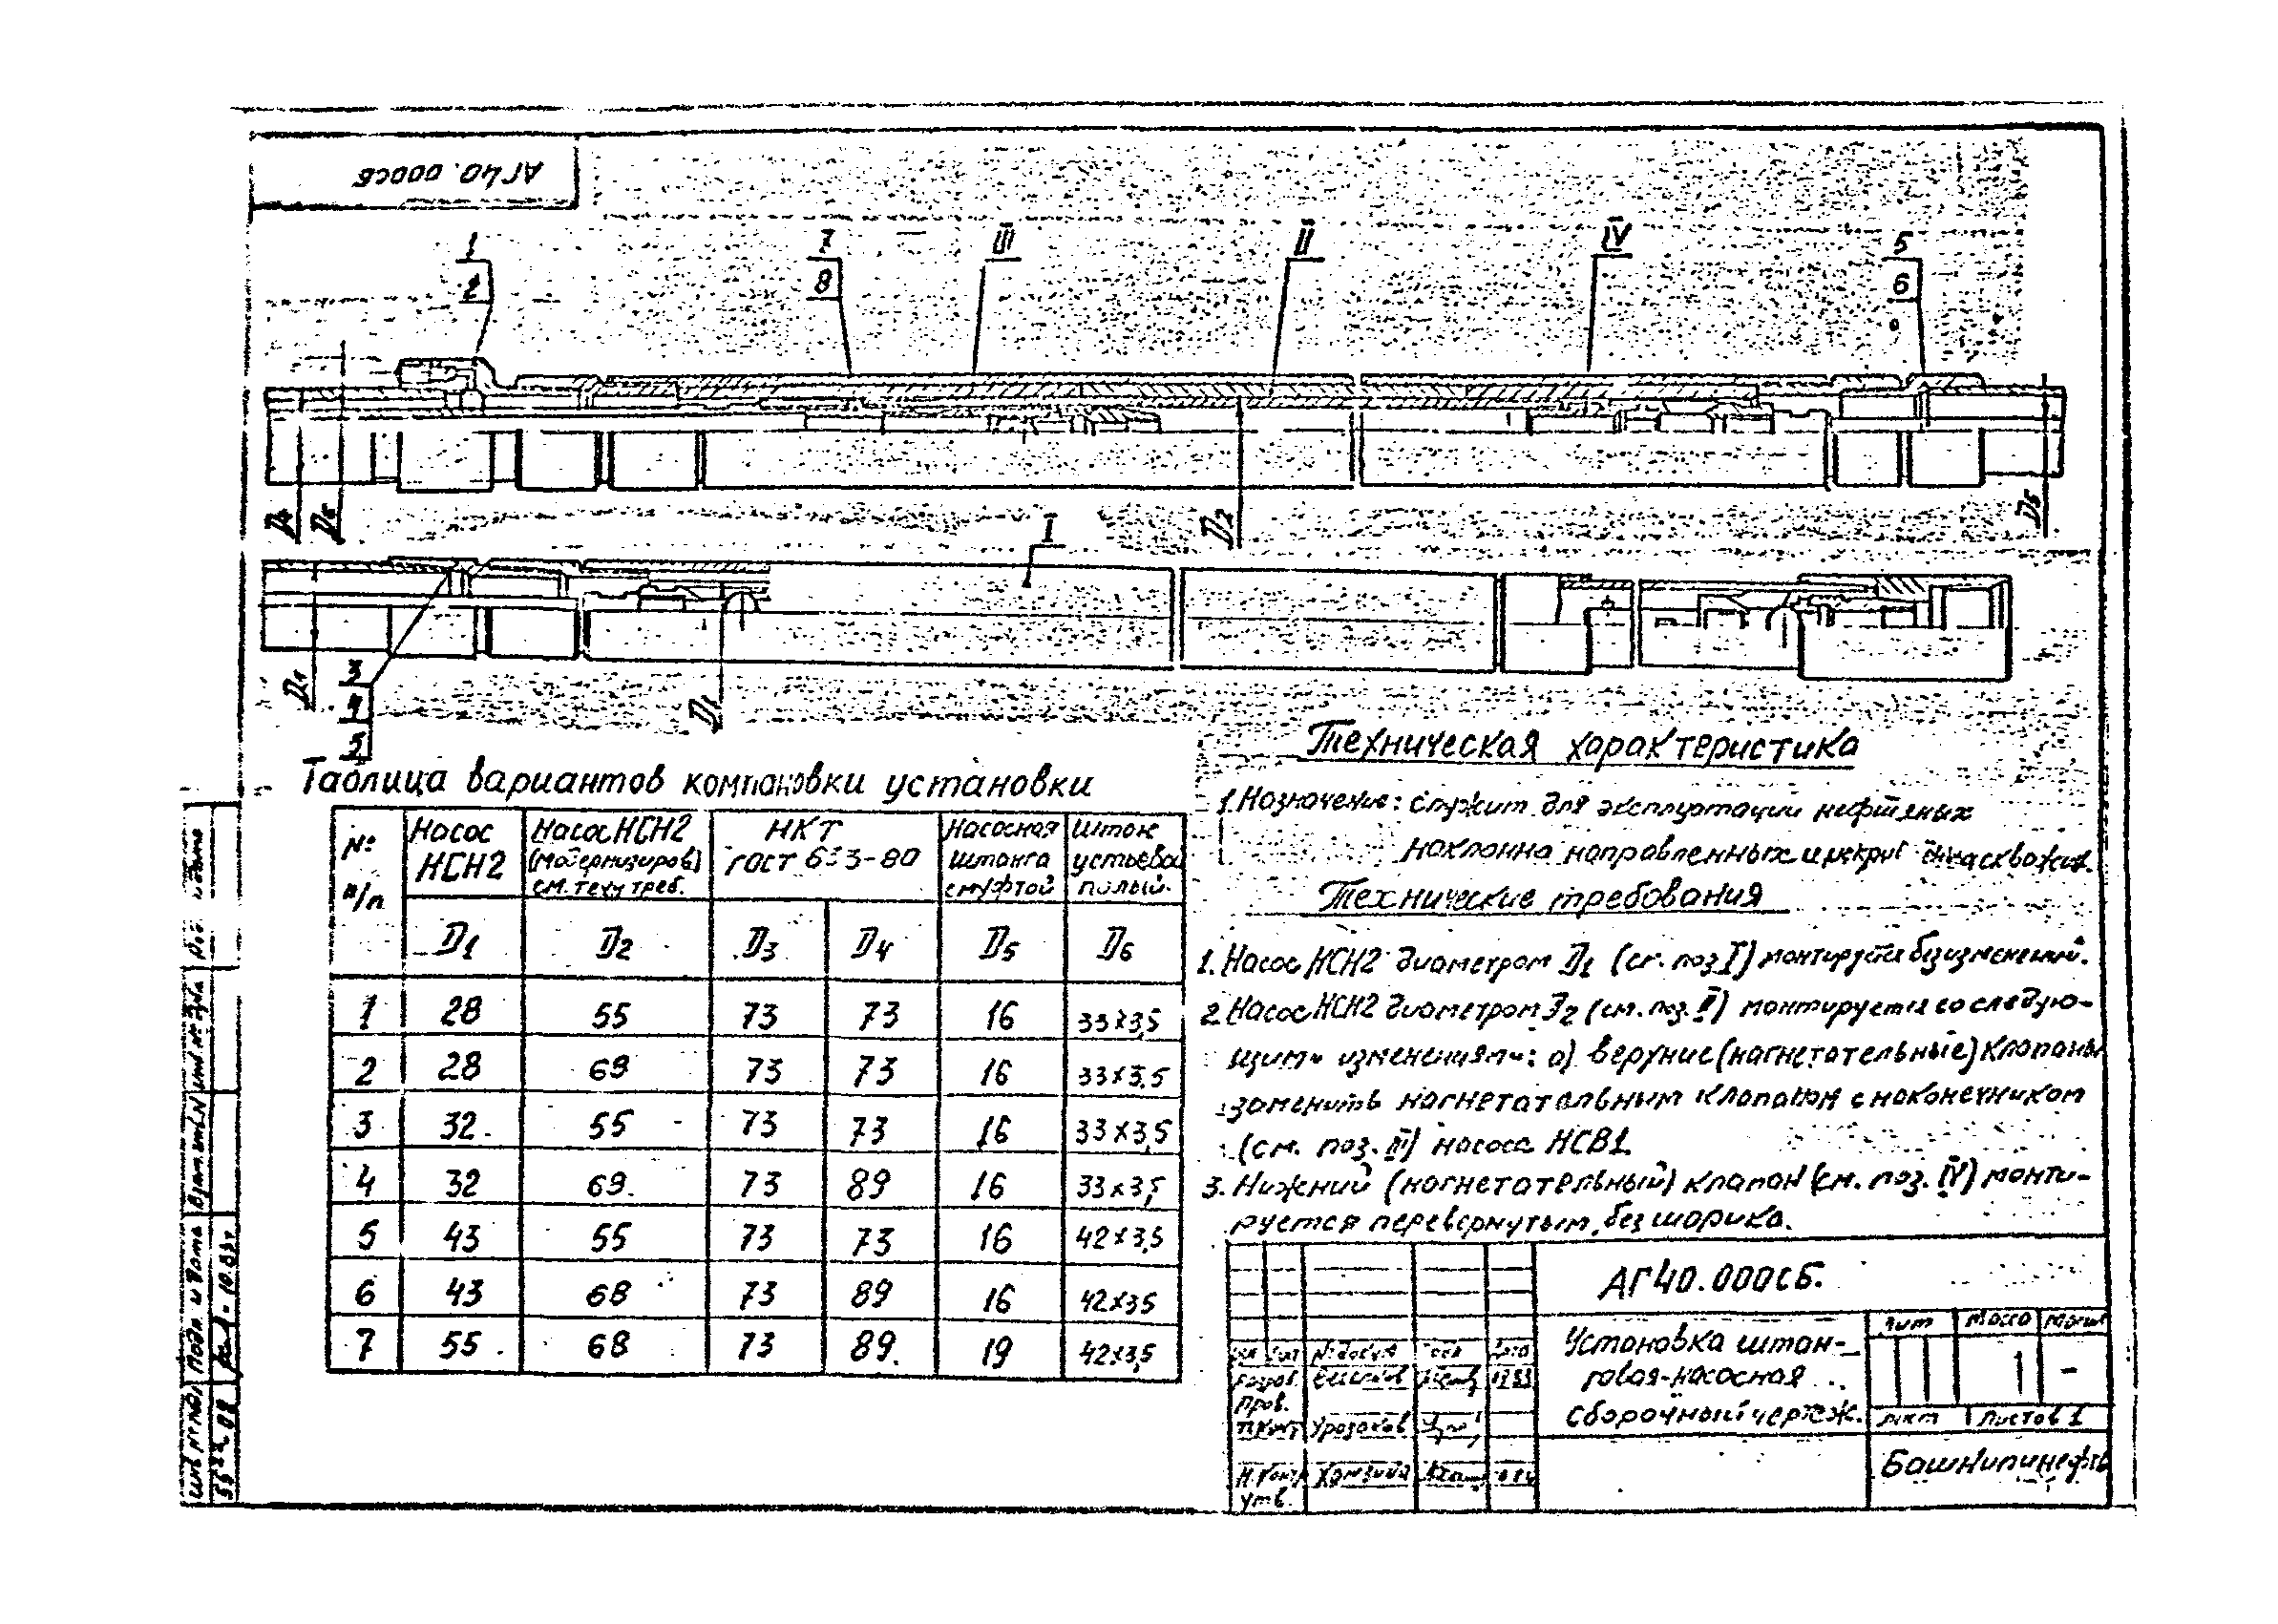 АГ40.000СБ
1
2
7
8
III
II
IV
5
6
D4
D6
D2
D5
I
D1
3
4
5
Таблица вариантов компановки установки
№ п/п
Насос НСН2
Насос НСН2 (модернизиров) см. техн треб.
НКТ ГОСТ 633-80
Насосная штанга с муфтой
Шток устьевой полый.
D1 D2 D3 D4 D5 D6
1 28 55 73 73 16 33×3,5
2 28 69 73 73 16 33×3,5
3 32 55 73 73 16 33×3,5
4 32 69 73 89 16 33×3,5
5 43 55 73 73 16 42×3,5
6 43 68 73 89 16 42×3,5
7 55 68 73 89 19 42×3,5
Техническая характеристика
1. Назначение: служит для эксплуатации нефтяных
наклонно направленных и скважин.
Технические требования
1. Насос НСН2 диаметром D1 (см. поз I) монтируется без изменений.
2. Насос НСН2 диаметром D2 (см. поз. II) монтируется со следую-
щими изменениями: а) верхние (нагнетательные) клапаны
заменить нагнетательным клапаном с наконечником
(см. поз. III) насоса НСВ1.
3. Нижний (нагнетательный) клапан (см. поз. IV) монти-
руется перевернутым, без шарика.
АГ40.000СБ.
Установка штан-
говая-насосная
сборочный чертеж.
Лит Масса Масшт
1 -
Лист Листов 1
БашНипинефть
Изм Лист № докум Подп Дата
Разраб.
Пров.
Т.контр Уразаков
Н.контр
Утв.
Инв № подл Подп и дата Взам. инв N Инв № дубл Подп и дата